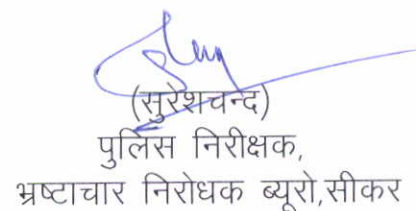 (सुरेशचन्द)
पुलिस निरीक्षक,
भ्रष्टाचार निरोधक ब्यूरो,सीकर